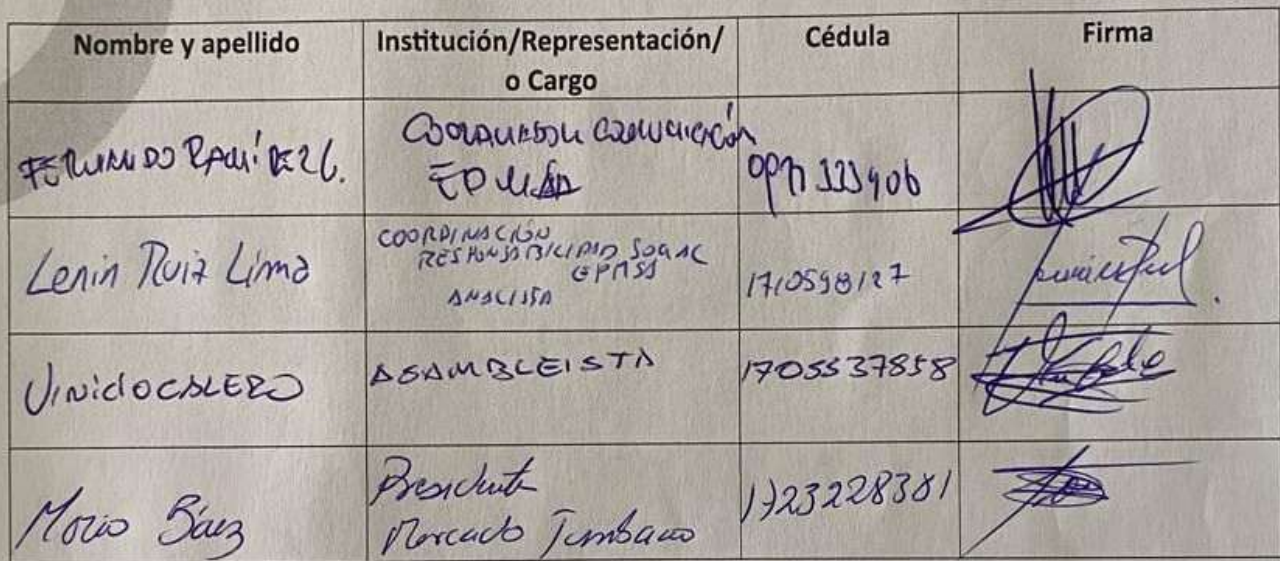 Nombre y apellido
Institución/Representación/
o Cargo
Cédula
Firma
FERNANDO RAMÍREZ C.
COORDINADOR COMUNICACIÓN
Lenin Ruiz Lima
COORDINACIÓN
RESPONSABILIDAD SOCIAL
EPMSA
ANALISTA
1710598127
VINICIO CALERO
ASAMBLEISTA
1705537858
Mario Báez
Presidente
Mercado Tumbaco
1723228381